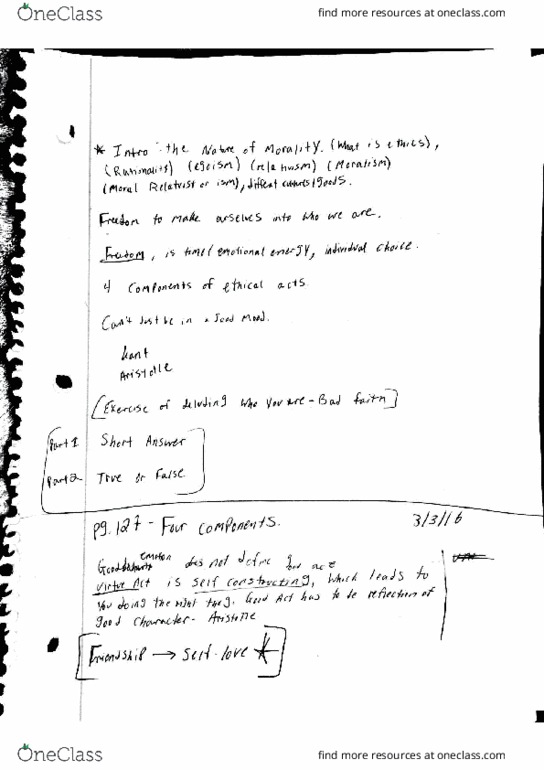 OneClass
find more resources at oneclass.com
* Intro the Nature of Morality. (What is ethics),
(Rationality) (egoism) (relativism) (Moralism)
(Moral Relativist or ism), diffeent cultures/goods.
Freedom to make ourselves into who we are.
Freedom, is time/emotional energy, individual choice.
4 components of ethical acts.
Can't Just be in a Good Mood.
Kant
Aristotle
[Exercise of deluding who you are - Bad faith]
Part 1 Short Answer
Part 2 True or False
pg. 127 - Four components. 3/3/16
Good emotion does not define good act
Virtue Act is self constructing, which leads to
you doing the right thing. Good Act has to be reflection of
good character - Aristotle
[Friendship → Self-love *]
OneClass
find more resources at oneclass.com